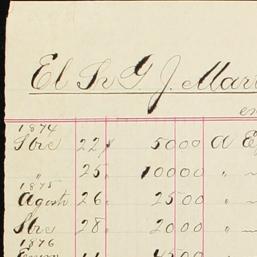 El Sr G J. Mar
en
1874
Sbre 22 5000 A E
" 25 10000 "
1875
Agosto 26 2500 "
Sbre 28 2000 "
1876